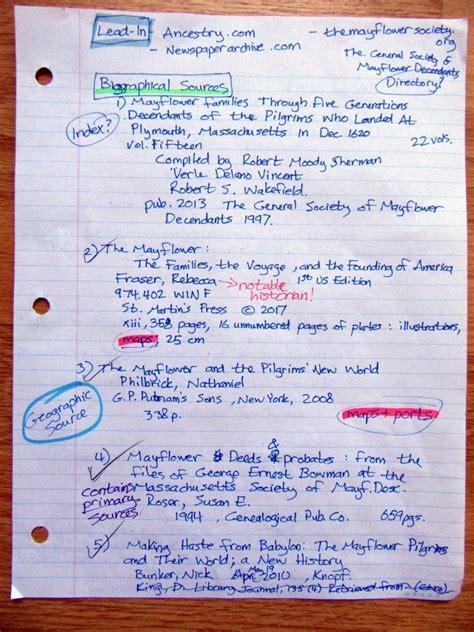 Lead-In
- Ancestry.com
- Newspaperarchive.com
- themayflowersociety.org
The General Society of
Mayflower Decendants
Directory?
Biographical Sources
Index?
1) Mayflower families Through Five Generations
Decendants of the Pilgrims Who Landed At
Plymouth, Massachusetts in Dec. 1620
22 vols.
Vol. Fifteen
Compiled by Robert Moody Sherman
Verle Delano Vincent
Robert S. Wakefield.
pub. 2013 The General Society of Mayflower
Decendants 1997.
2) The Mayflower:
The Families, the Voyage, and the Founding of America
Fraser, Rebecca → notable historian!
1st US Edition
974.402 WIN F
St. Martin's Press © 2017
xiii, 358 pages, 16 unnumbered pages of plates: illustrations,
maps, 25 cm
3) The Mayflower and the Pilgrims' New World
Philbrick, Nathaniel
G.P. Putnam's Sons, New York, 2008
338 p.
maps + ports
Geographic Source
4) Mayflower Deeds & probates: from the
files of George Ernest Bowman at the
Massachusetts Society of Mayf. Dex.
contains primary sources
Roser, Susan E.
1994, Genealogical Pub. Co. 659 pgs.
5) Making Haste from Babylon: The Mayflower Pilgrims
and Their World; a New History
Bunker, Nick May 19 2010, Knopf.
King, D. Library Journal, 135 (4) Retrieved from